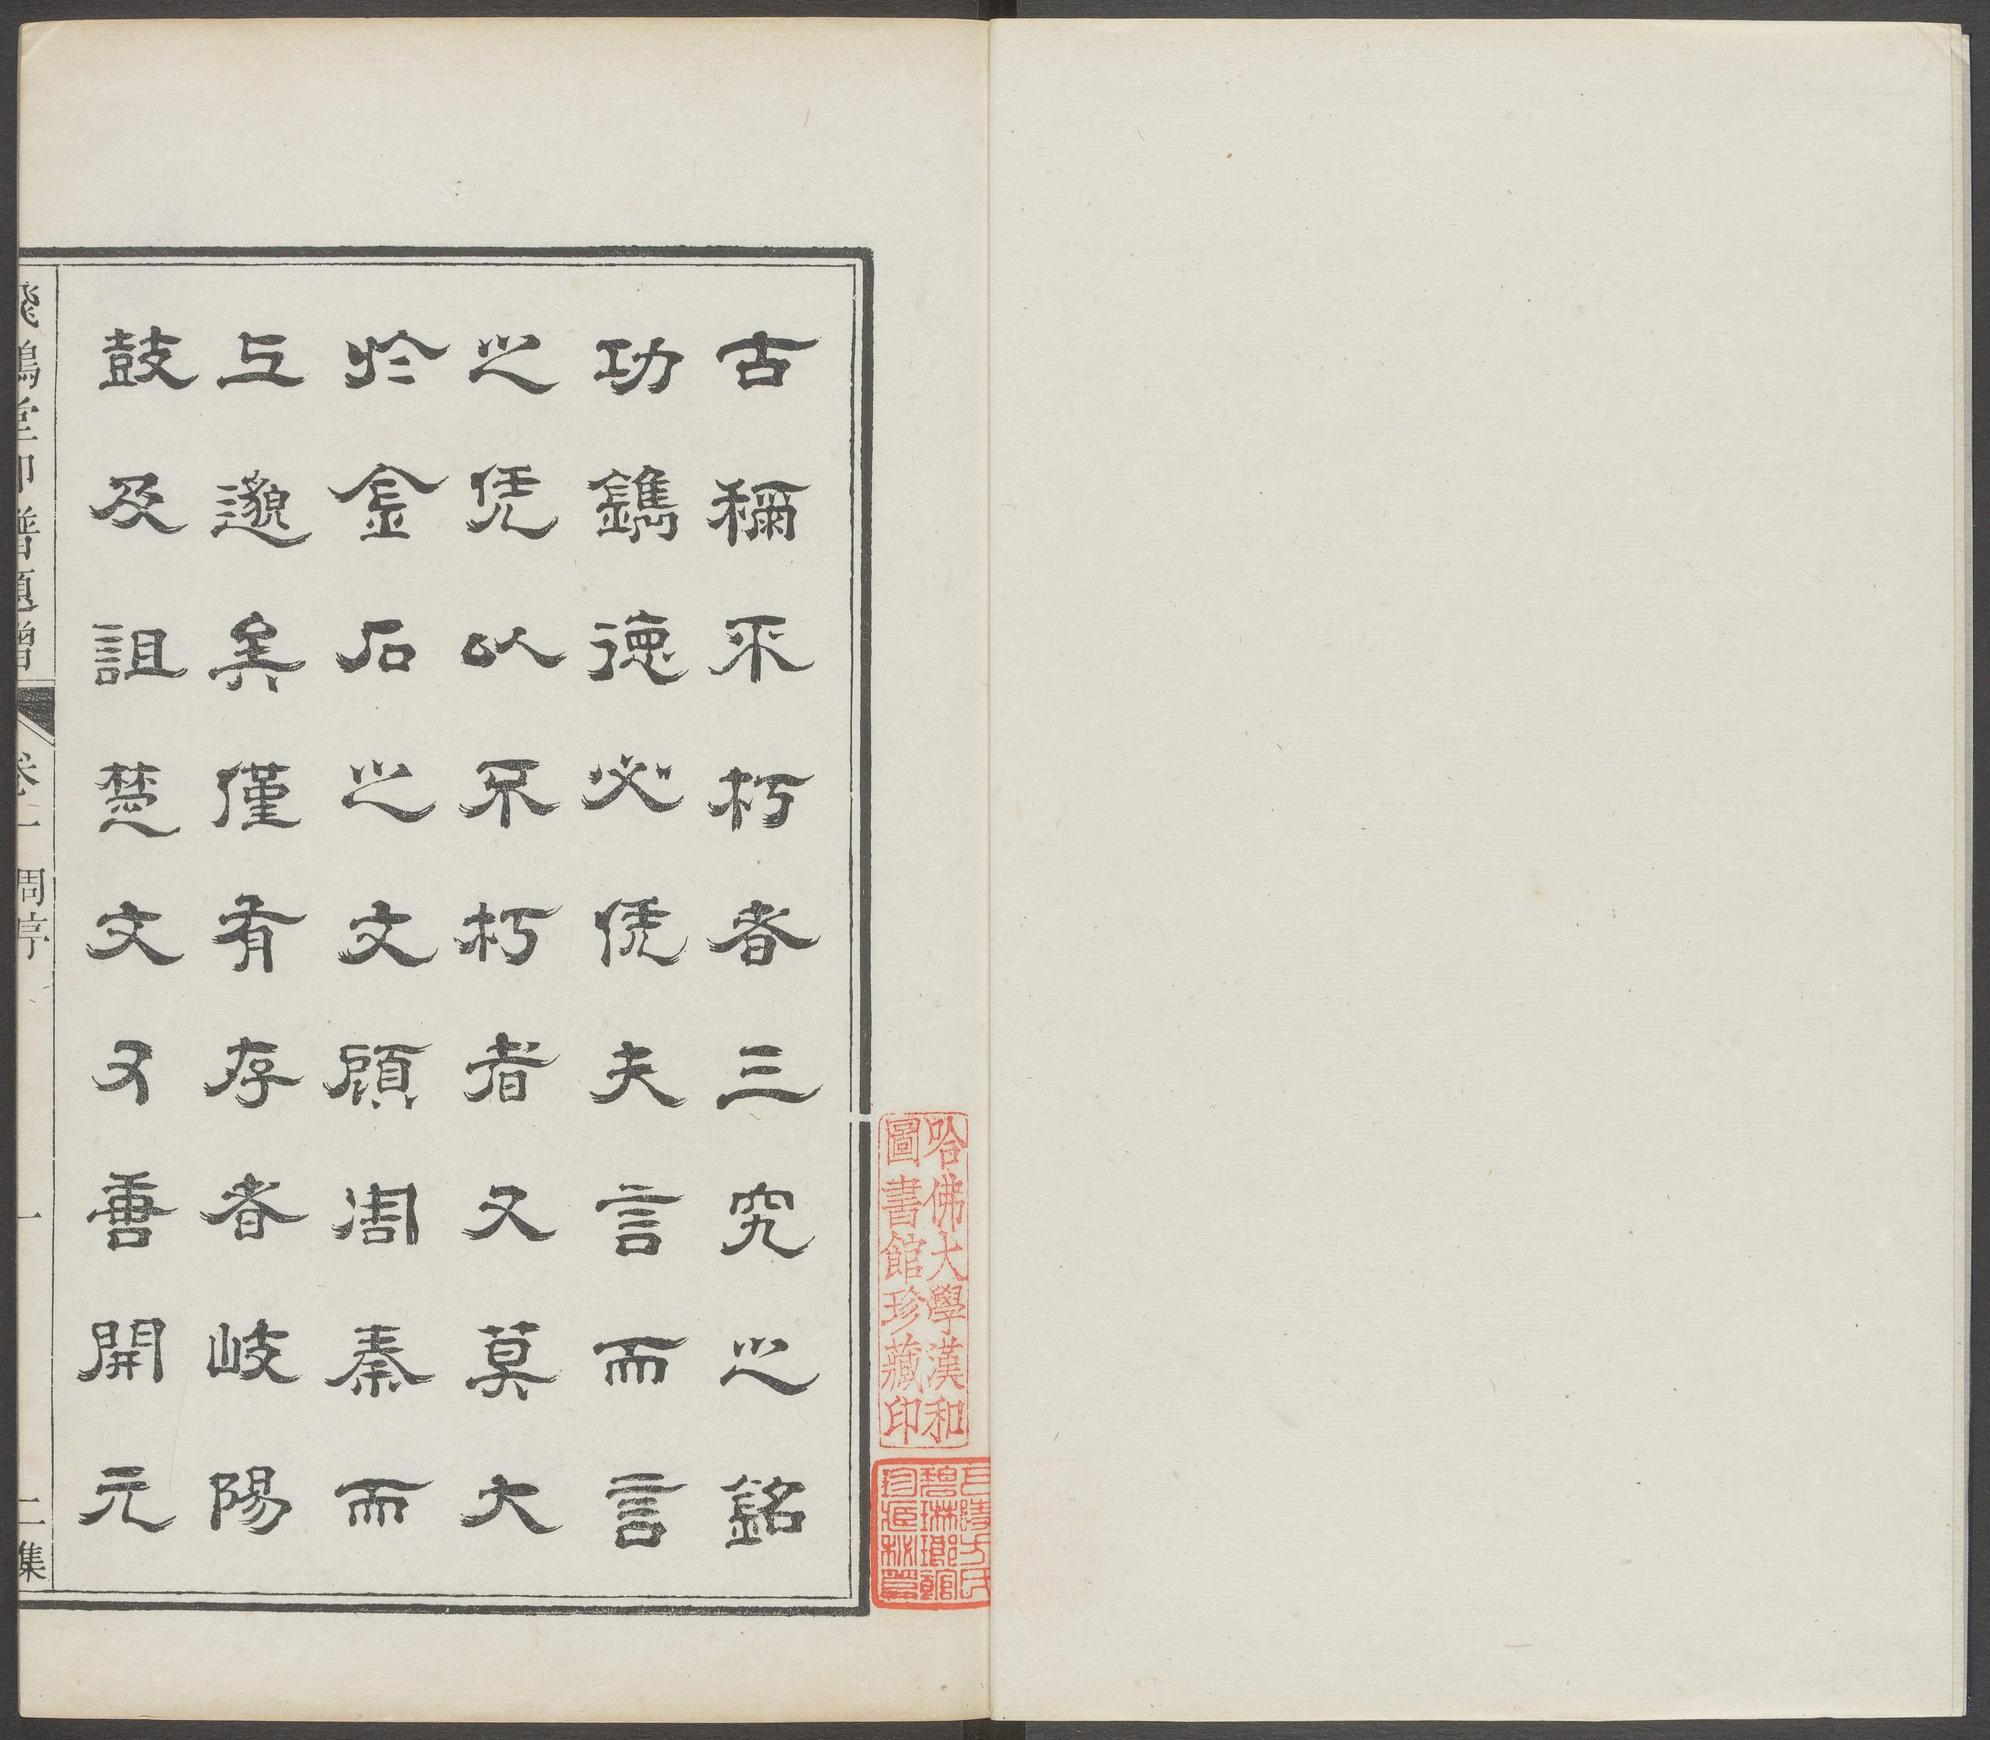 古稱不朽者三究之銘
功鐫德必凭夫言而言
之凭以不朽者又莫大
於金石之文顧周秦而
上邈矣僅有存者岐陽
鼓及詛楚文耳善開元
飛鴻堂印譜題贈
卷二
周序
一
二集
哈佛大學漢和
圖書館珍藏印
巴陵方氏
碧琳瑯館
珍臧